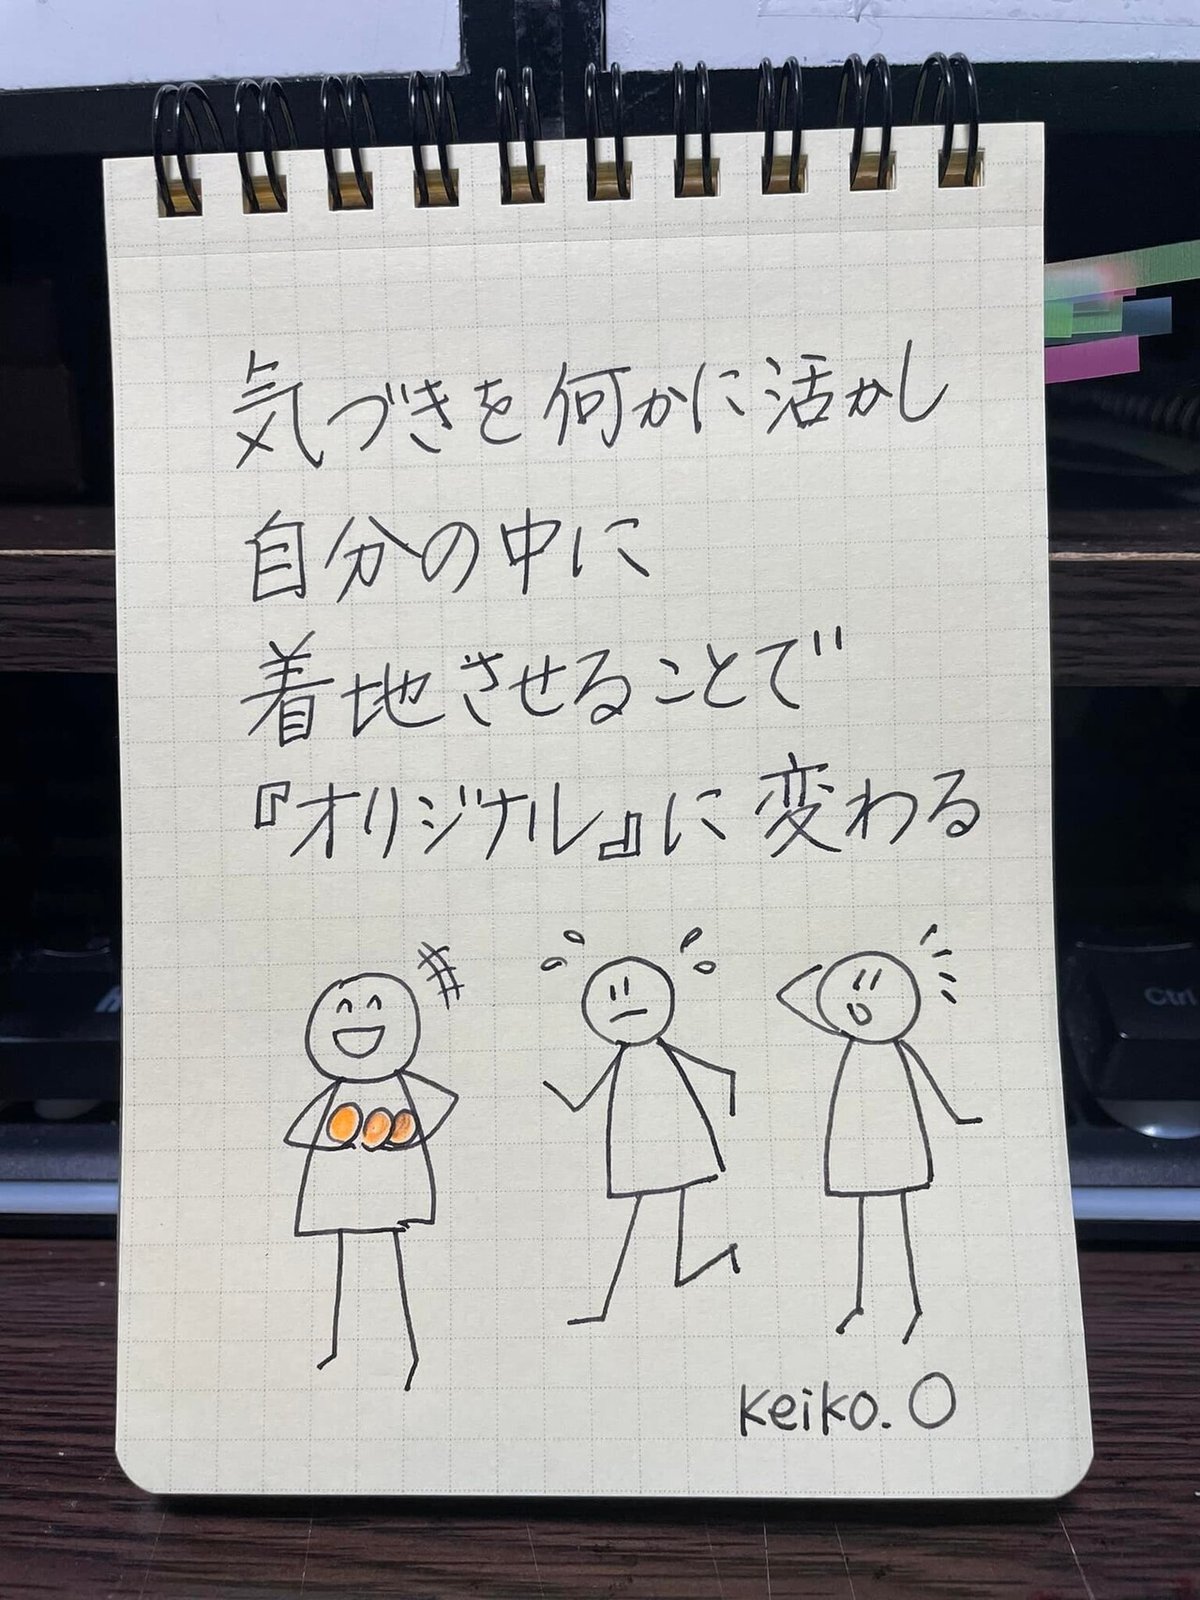 気づきを何かに活かし
自分の中に
着地させることで
『オリジナル』に変わる
keiko.O
Ctrl